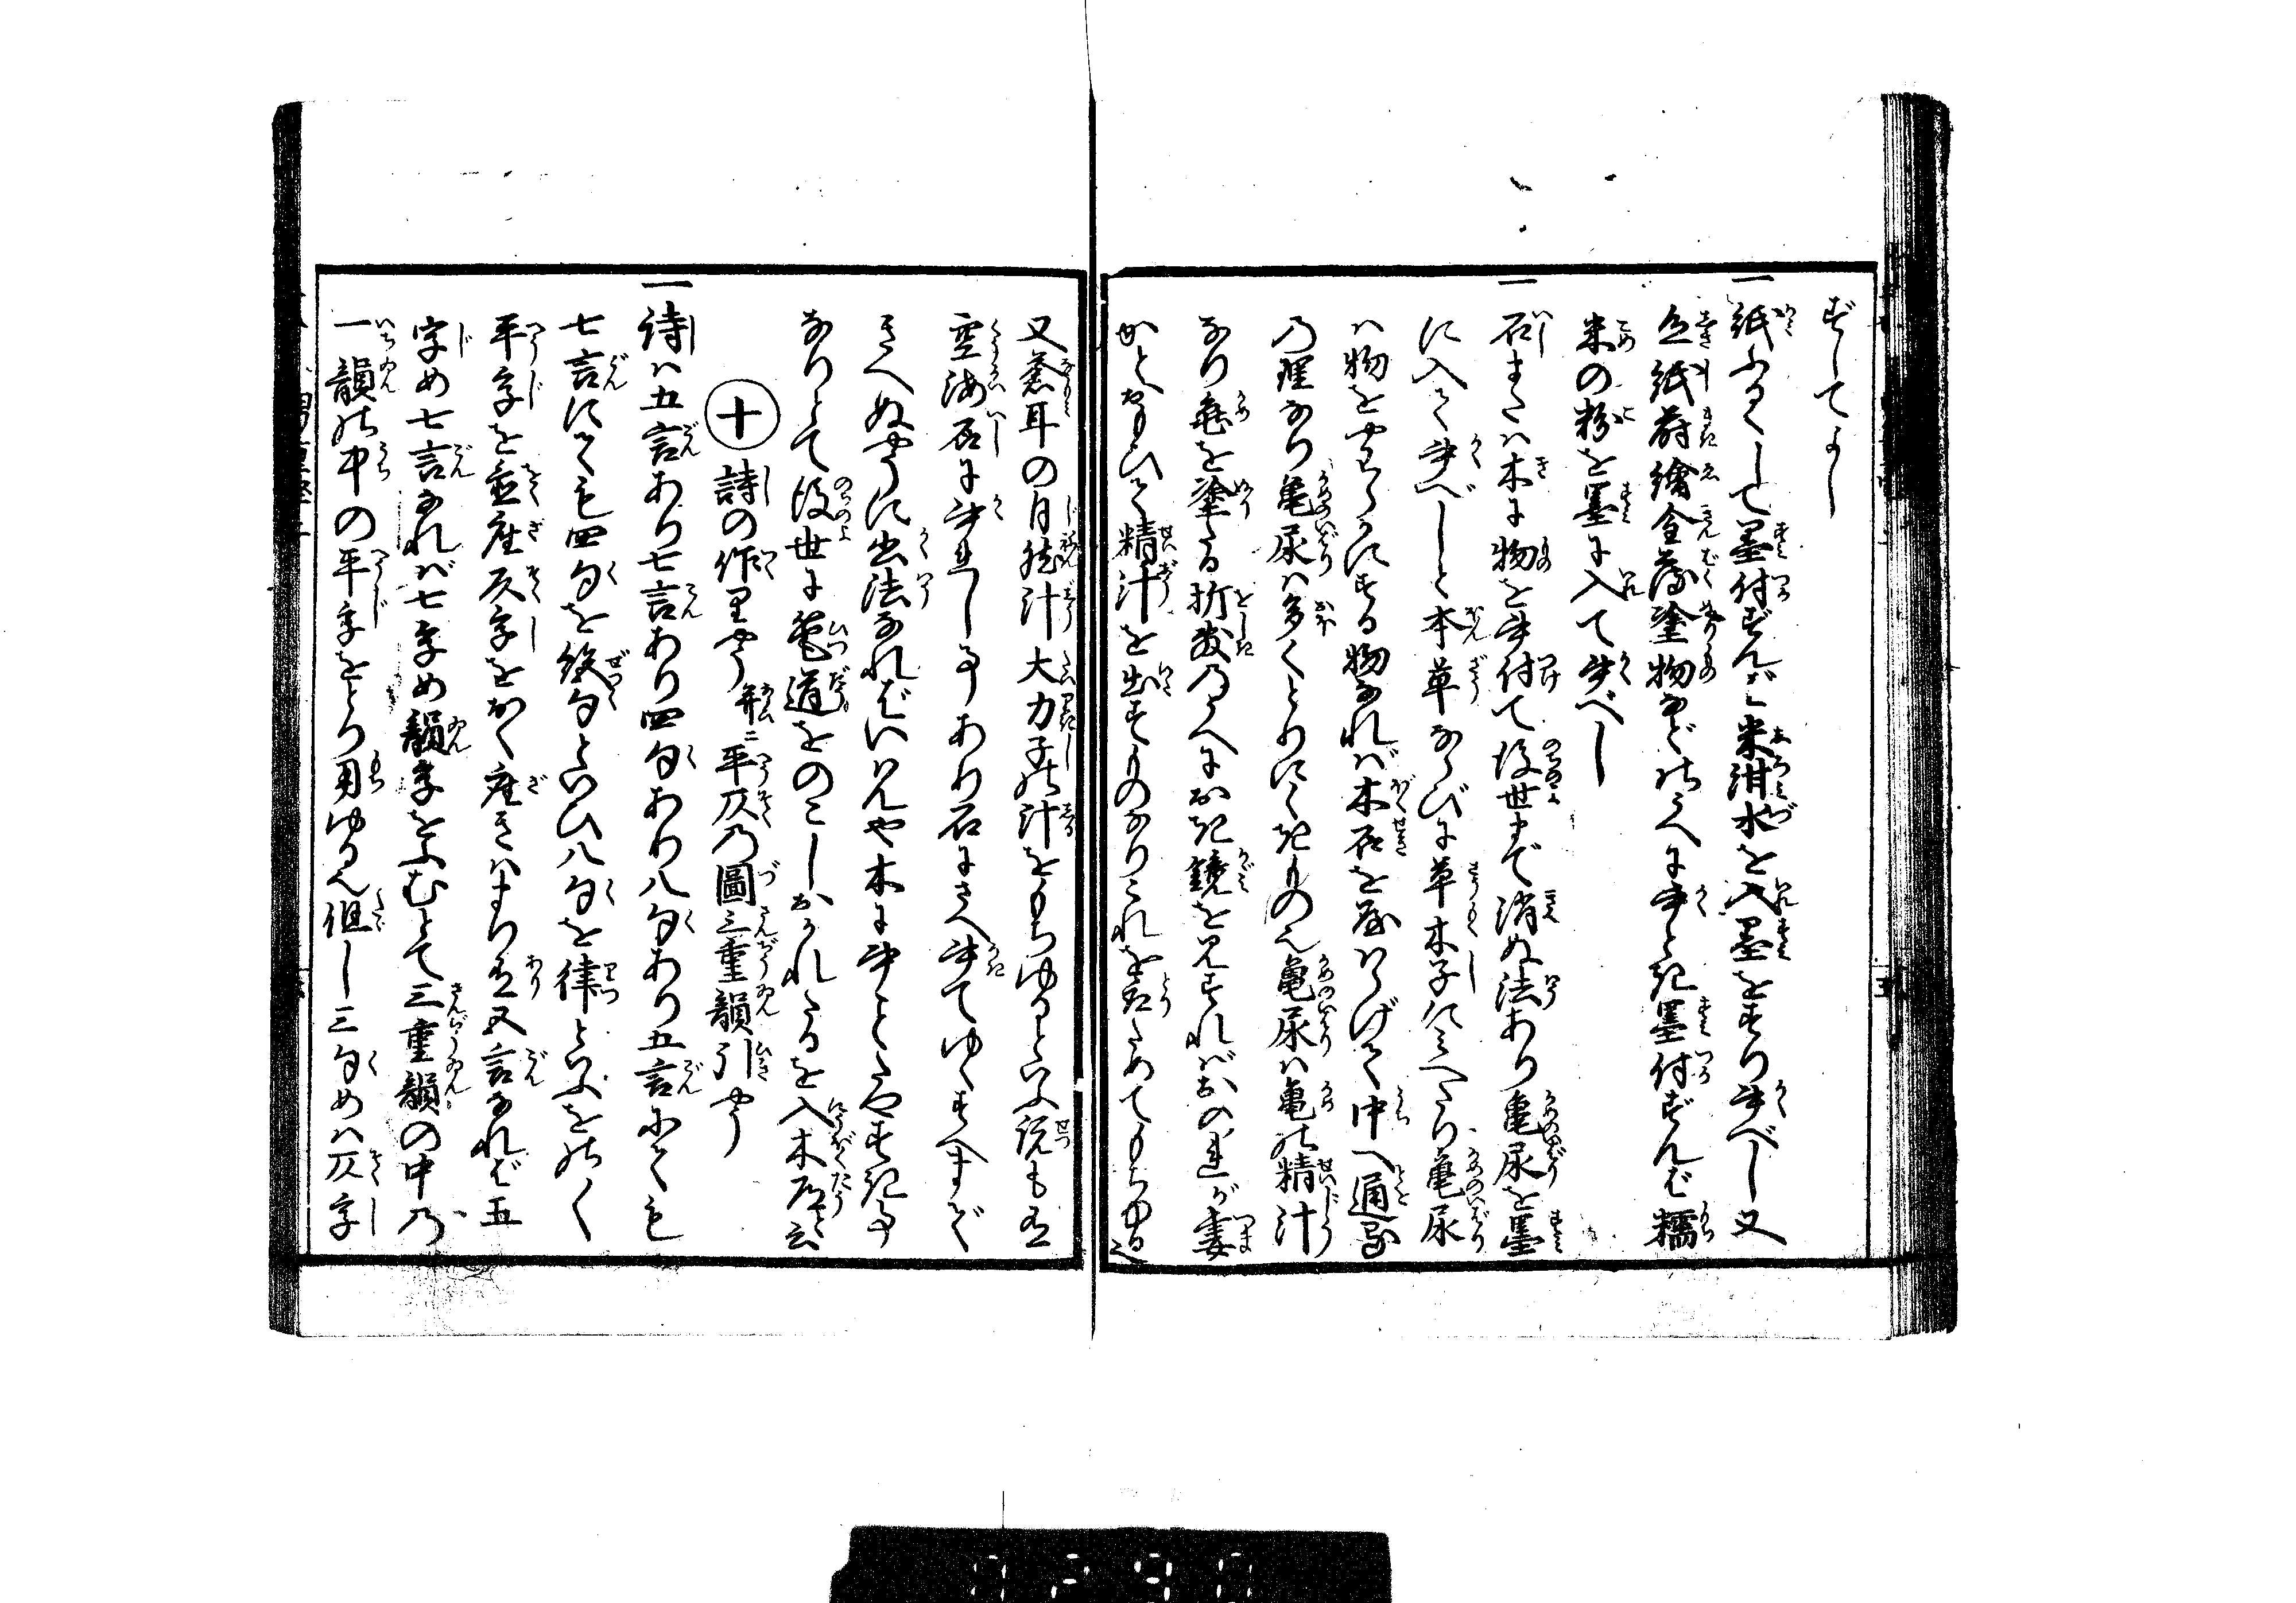 ずしてよし
一紙ふるくして墨付ずんば米泔水を入墨をすり書べし又
色紙蒔繪金薄塗物などのうへに書とき墨付ずんば糯
米の粉を墨に入て書べし
一石または木に物を書付て後世まで消ぬ法あり亀尿を墨
に入て書べしと本草ならびに草木子に見へたり亀尿
ハ物をやわらかにする物なれば木石を和らげて中へ通る
の理なり亀尿ハ多くとりにくきもの也亀尿ハ亀の精汁
なり亀を塗たる折敷のうへにおき鏡を見すればおのれが妻
かとおもひて精汁を出すものなりこれを取ためてもちゆる也
又蒼耳の自然汁大力子の汁をもちゆるといふ説も有
空海石に書れし事あり石にさへ書てゆくすへまで
きへぬやうに書法なればいはんや木に書ことたやすき事
なりとて後世に筆道をのこしおかれたるを入木道と云
㊉詩の作りやう并ニ平仄の圖三重韻引やう
一詩ハ五言あり七言あり四句あり八句あり五言にても
七言にても四句を絶句といひ八句を律といふをのく
平字を置座仄字をおく座きはまり有又五言なれば五
字め七言なれば七字め韻字をふむとて三重韻の中の
一韻の中の平字をとり用ゆる也但し三句めハ仄字